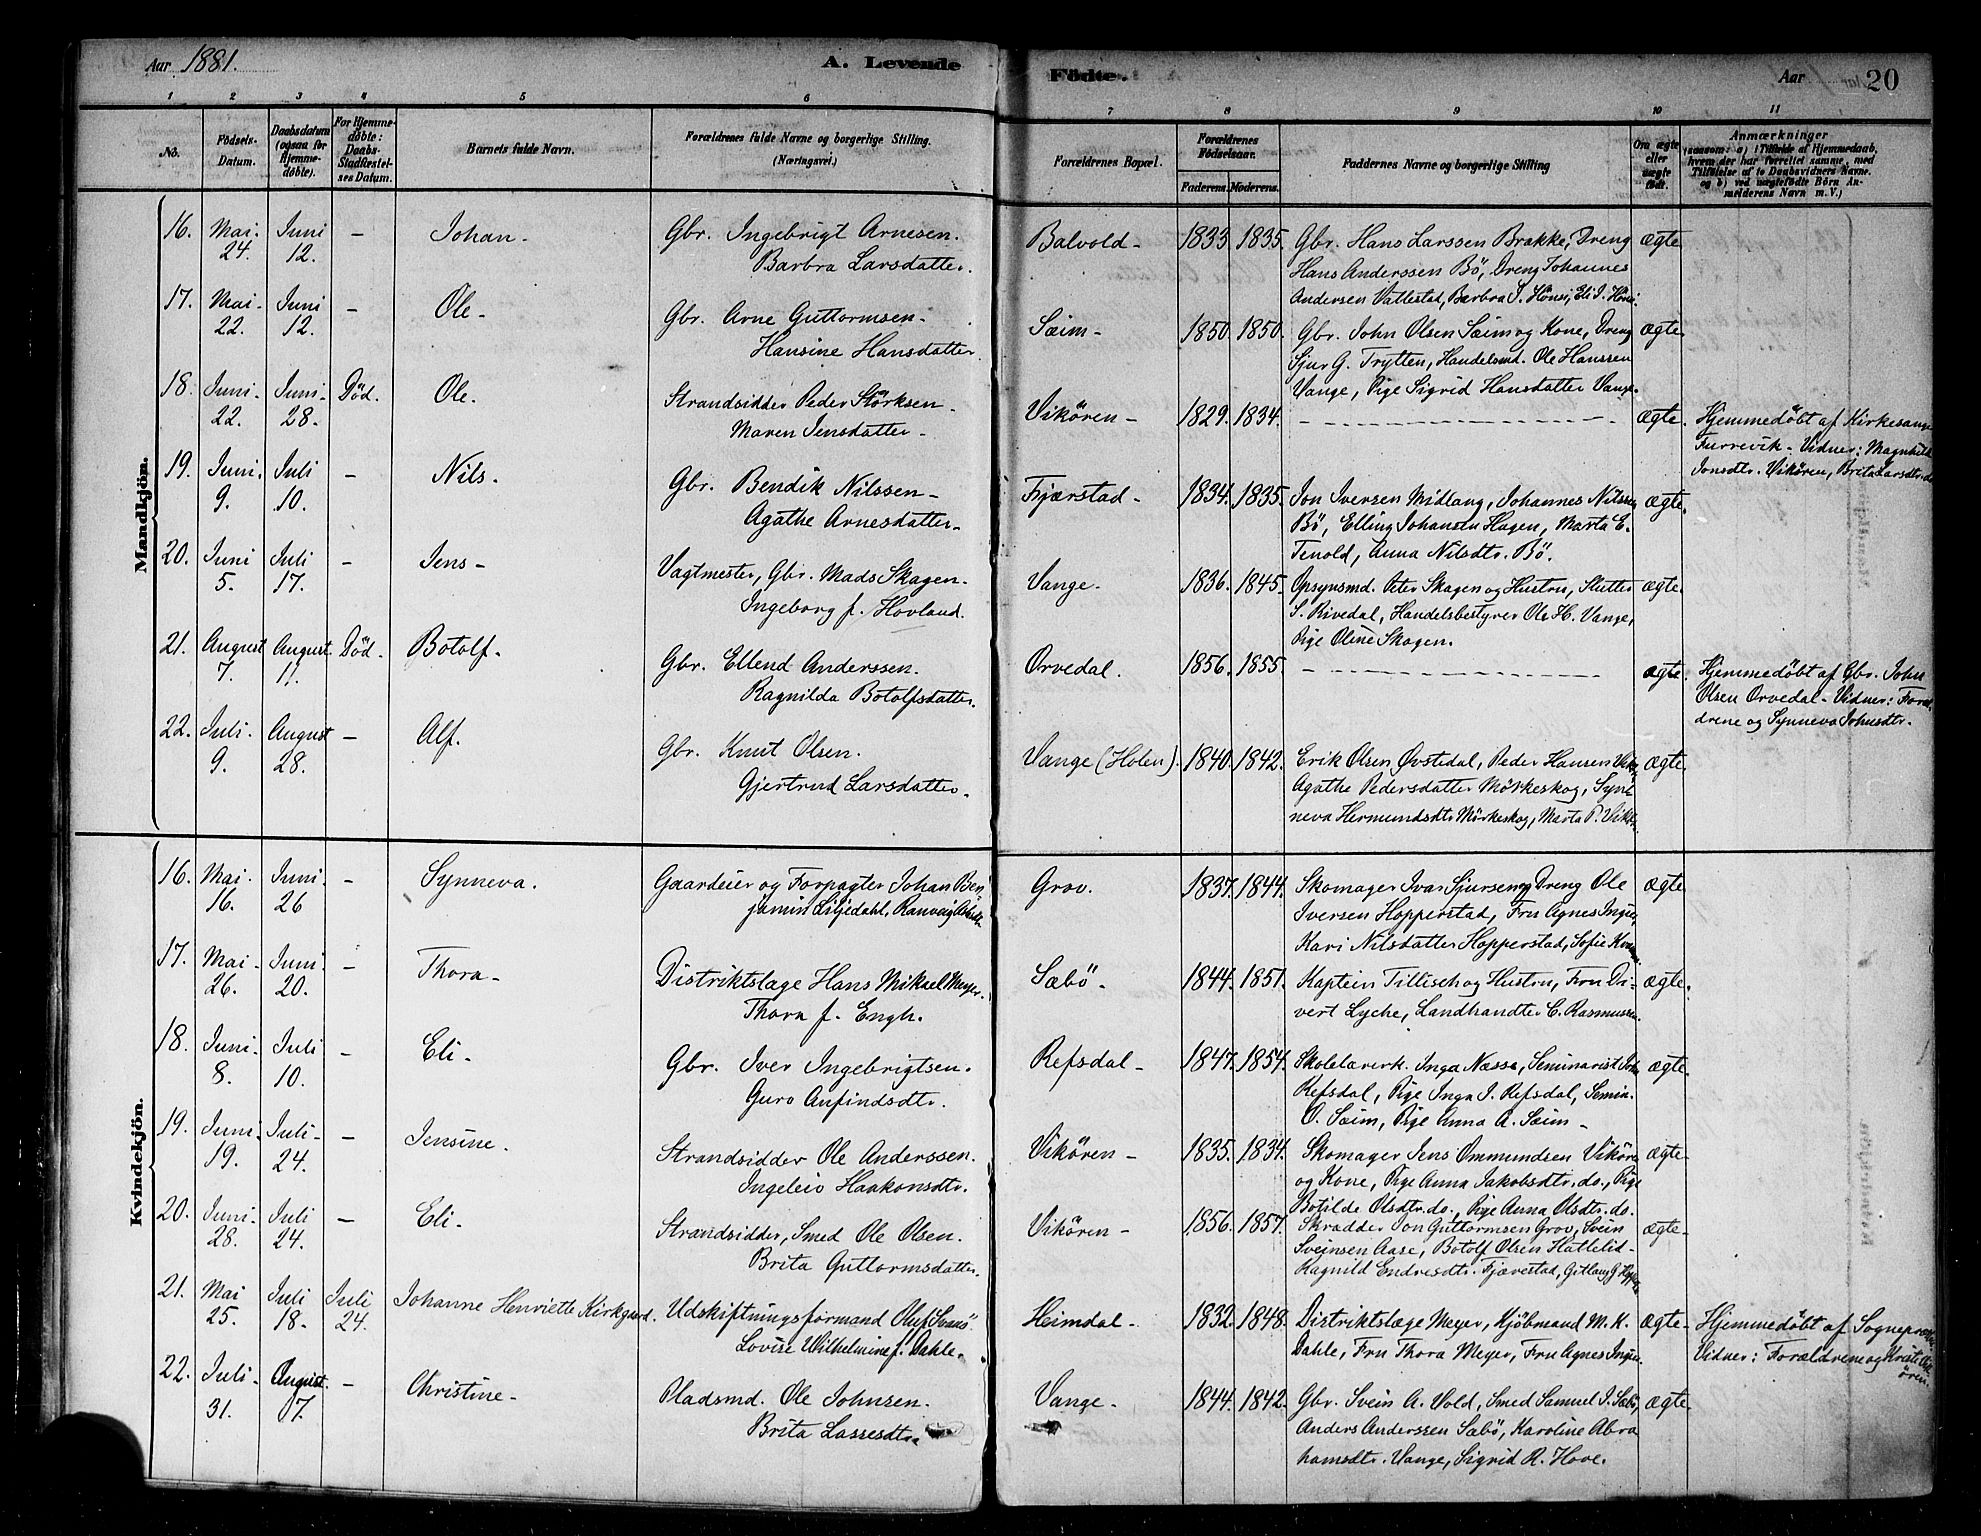 Aar 1881. A. Levende Födte. Aar 20
1 2 3 4 5 6 7 8 9 10 11
No. Födsels-Datum. Daabsdatum (ogsaa for Hjemme-döbte). For Hjemme-döbte: Daabs-Stadfæstel-ses Datum. Barnets fulde Navn. Forældrenes fulde Navne og borgerlige Stilling. (Næringsvei.) Forældrenes Bopæl. Forældrenes Födselsaar. Faderens. Moderens. Faddernes Navne og borgerlige Stilling Om ægte eller uægte födt. Anmærkninger (saasom: a) i Tilfælde af Hjemmedaab, hvem der har forrettet samme, med Tilföielse af to Daabsvidners Navne, og b) ved uægtefödte Börn An-melderens Navn m. V.)
Mandkjön.
16. Mai 24. Juni 12. – Johan. Gbr. Ingebrigt Arnesen. Balvold – 1833. 1835. Gbr. Hans Larssen Brække, Dreng ægte
Barbra Larsdatter. Hans Anderssen Bö, Dreng Johannes
Andersen Vallestad, Barbra J. Hönsi, Eli J. Hönsi.
17. Mai 22. Juni 12. – Ole – Gbr. Arne Guttormsen – Sæim – 1850. 1850. Gbr. John Olsen Sæim og Kone, Dreng ægte
Hansine Hansdatter. Sjur G. Trytten, Handelsmd. Ole Hanssen
Vange, Pige Sigrid Hansdatter Vange.
18. Juni 22. Juni 28. Död. Ole. Strandsidder Peder Störksen – Vikören – 1829. 1834. – ægte. Hjemmedöbt af Kirkesanger
Maren Jensdatter – Furrevik – Vidner: Magnhild
Jonsdtr. Vikören, Brita Larsdtr. do
19. Juni 9. Juli 10. – Nils. Gbr. Bendik Nilssen – Fjærstad – 1834. 1835. Jon Iversen Midlang, Johannes Nilssen ægte.
Agathe Arnesdatter – Bö, Elling Johansen Hagen, Marta E.
Tenold, Anna Nilsdtr. Bö.
20. Juni 5. Juli 17. – Jens – Vagtmester, Gbr. Mads Skagen. Vange – 1836. 1845. Opsynsmd. Peter Skagen og Hustru, Slutter ægte.
Ingeborg f. Hovland. S. Rivedal, Handelsbestyrer Ole H. Vange,
Pige Oline Skagen.
21. August 7. August 11. Död. Botolf. Gbr. Ellend Anderssen. Orvedal. 1856. 1855. – ægte. Hjemmedöbt af Gbr. John
Ragnilda Botolfsdatter. Olsen Orvedal – Vidner: Foræl-
drene og Synneva Johnsdtr.
22. Juli 9. August 28. – Alf. Gbr. Knut Olsen. Vange (Holen). 1840. 1842. Erik Olsen Øvstedal, Peder Hansen ægte.
Gjertrud Larsdatter. Agathe Pedersdatter Mörkeskog, Syn-
neva Hermundsdtr Mörkeskog, Marta P.
Kvindekjön.
16. Mai 16. Juni 26 – Synneva. Gaardeier og Forpagter Johan Ben Grov. 1837. 1844. Skomager Ivar Sjursen og Dreng Ole ægte
jamin Liljedahl, Ranveig Iversen Hopperstad, Fru Agnes
Kari Nilsdatter Hopperstad, Sofie
17. Mai 26. Juni 20. – Thora – Distriktslæge Hans Mikael Meyer. Sæbö – 1844. 1851. Kaptein Tillisch og Hustru, Fru Di- ægte.
Thora f. Engh. vert Lyche, Landhandler C. Rasmussen.
18. Juni 8. Juli 10. – Eli – Gbr. Iver Ingebrigtsen. Refsdal – 1847. 1854. Skolelærerk. Inga Næsse, Seminarist ægte.
Guro Anfindsdtr. Refsdal, Pige Inga I. Refsdal, Semin.
O. Sæim, Pige Anna A. Sæim –
19. Juni 19. Juli 24. – Jensine. Strandsidder Ole Anderssen. Vikören – 1835. 1834. Skomager Jens Ommundsen Vikören ægte
Ingeleiv Haakonsdtr. og Kone, Pige Anna Jakobsdtr. do., Pige
Botilde Olsdtr. do., Pige Anna Olsdtr. do.
20. Juni 28. Juli 24. – Eli – Strandsidder, Smed Ole Olsen. Vikören – 1856. 1857. Skrædder Jon Guttormsen Grov, Svein ægte.
Brita Guttormsdatter. Sveinsen Aase, Botolf Olsen Hallelid –
Ragnild Endresdtr. Fjærestad, Gitlaug G.
21. Mai 25. Juli 18. Juli 24. Johanne Henriette Kirkgaard. Udskiftningsformand Oluf Svanö. Heimdal – 1832. 1848. Distriktslæge Meyer, Kjöbmand M. K. ægte – Hjemmedöbt af Sognepræsten
Lovise Wilhelmine f. Dahle. Dahle, Fru Thora Meyer, Fru Agnes Vidner: Forældrene og Kristi Vik-
ören.
22. Juli 31. August 7. – Christine – Pladsmd. Ole Johnsen. Vange – 1844. 1842. Gbr. Svein A. Vold, Smed Samuel J. Sæbö, ægte –
Brita Lassesdtr. Anders Anderssen Sæbö, Karoline Abra
hamsdtr. Vange, Sigrid R. Hove.